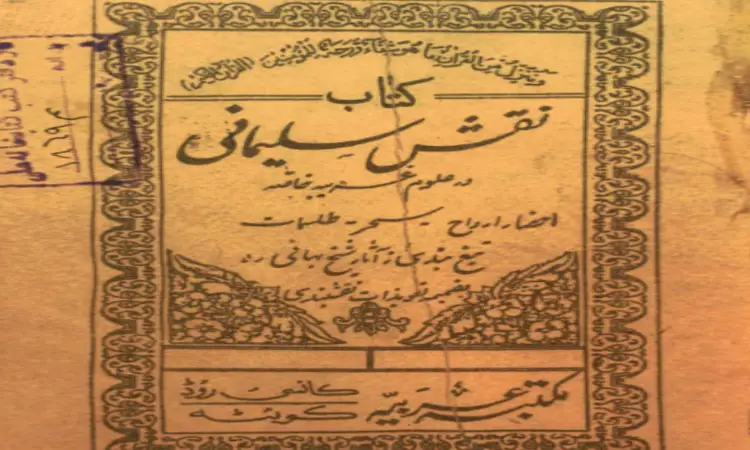 وننزل من القرآن ما هو شفاء ورحمة للمؤمنین (القرآن
کتاب
نقش سلیمانی
در علوم غریبه
احضار ارواح - سحر - طلسمات
تیغ بندی از آثار شیخ بهائی ره
تعویذات نقشبندی
مکتبه عربیه
کانسی روڈ
کوئٹه
۱۸۶۹۴